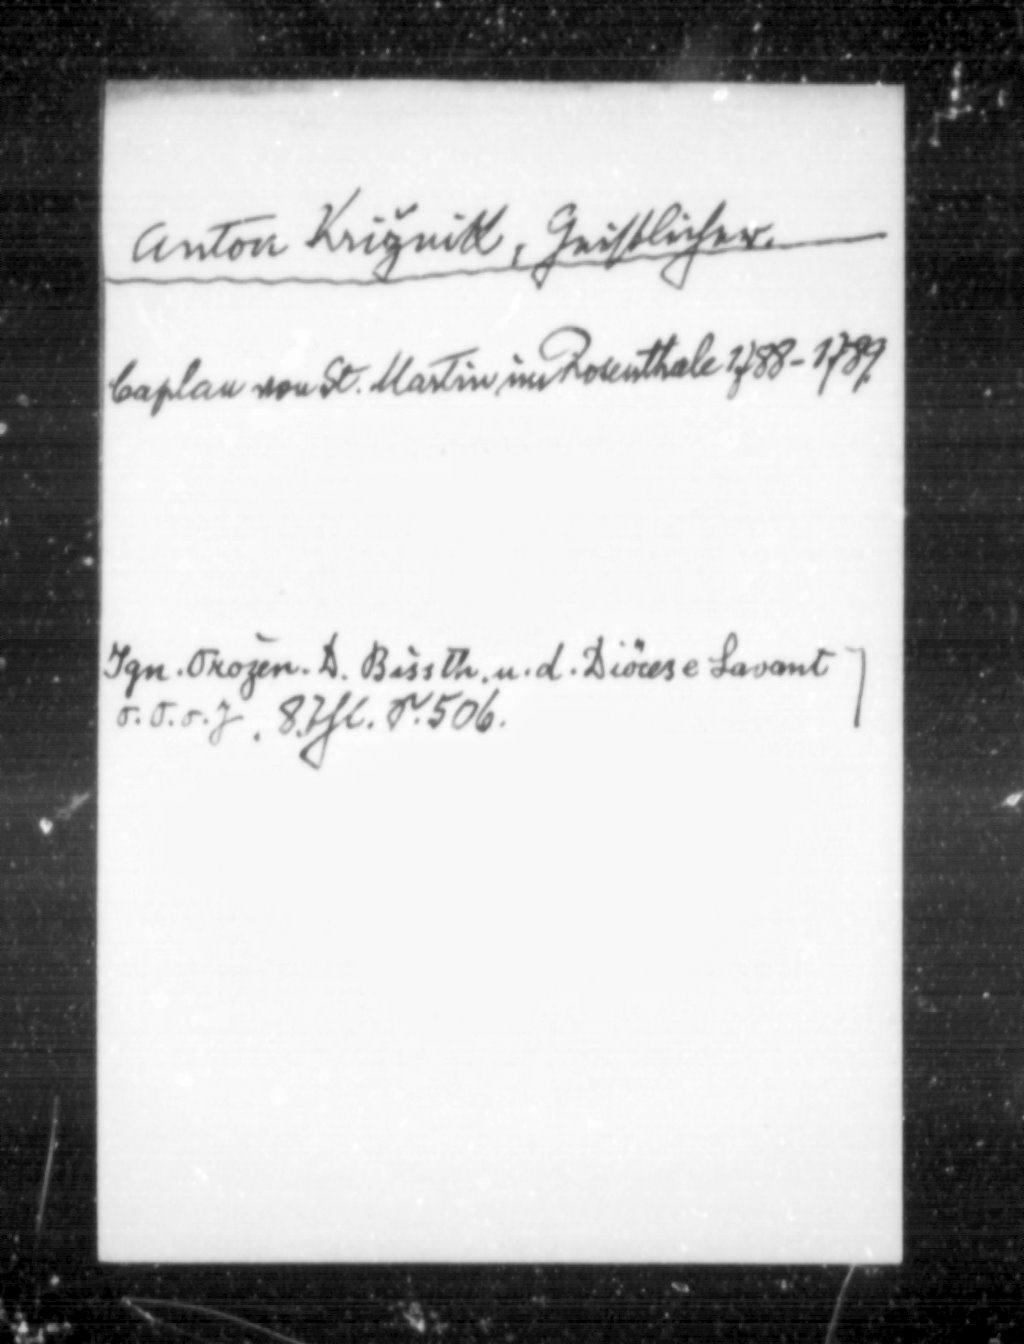 Anton Križnik, Geistlicher.
Caplan von St. Martin im Rosenthale 1788-1789.
Ign. Orožen. D. Bissth. u. d. Diöcese Lavant
8. Thl. S. 506.